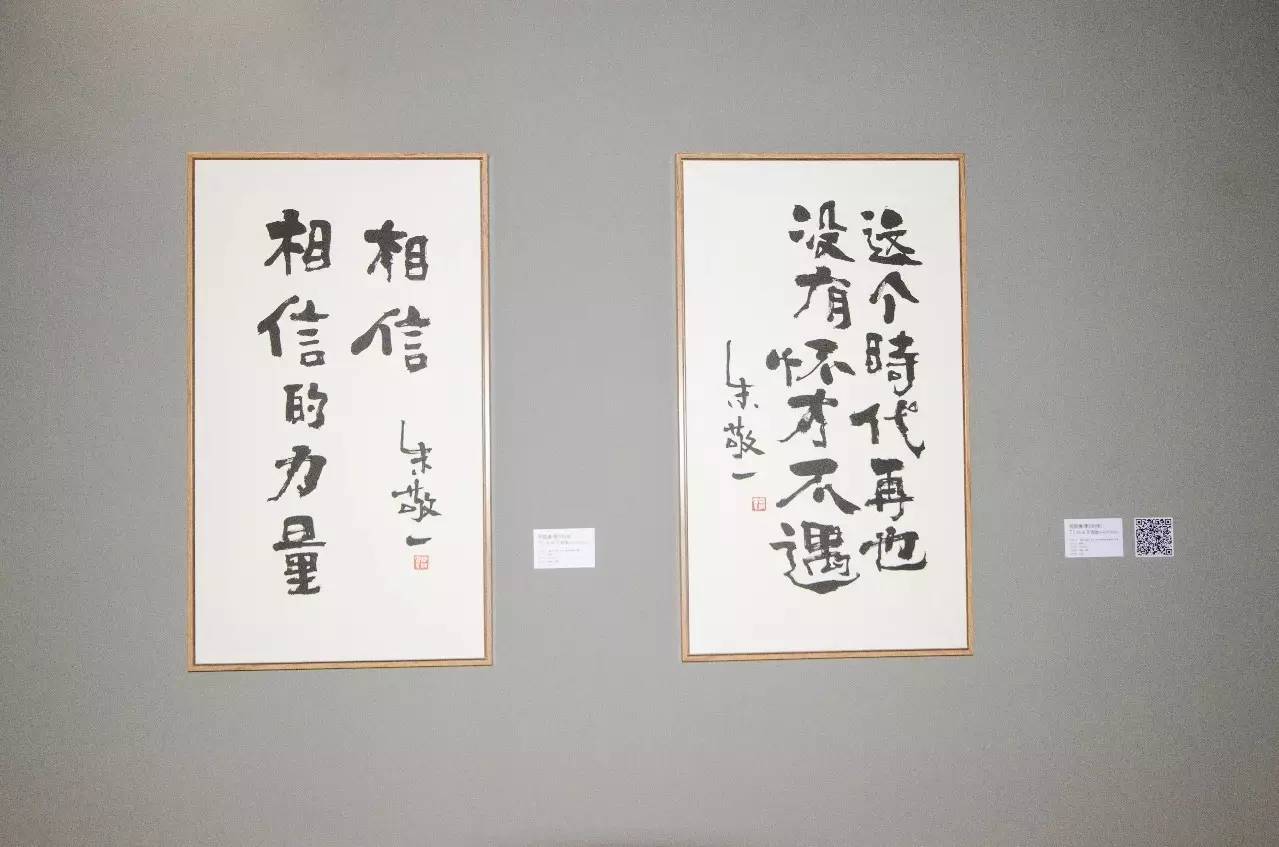 相信
相信的力量
朱敬一
这个時代再也
没有怀才不遇
朱敬一